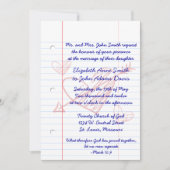 Mr. and Mrs. John Smith request
the honour of your presence
at the marriage of their daughter
Elizabeth Anne Smith
to John Adams Davis
Saturday, the 15th of May
Two thousand and twelve
at two o'clock in the afternoon
Trinity Church of God
1234 W Central Street
St. Louis, Missouri
What therefore God has joined together,
let no man separate.
- Mark 10:9